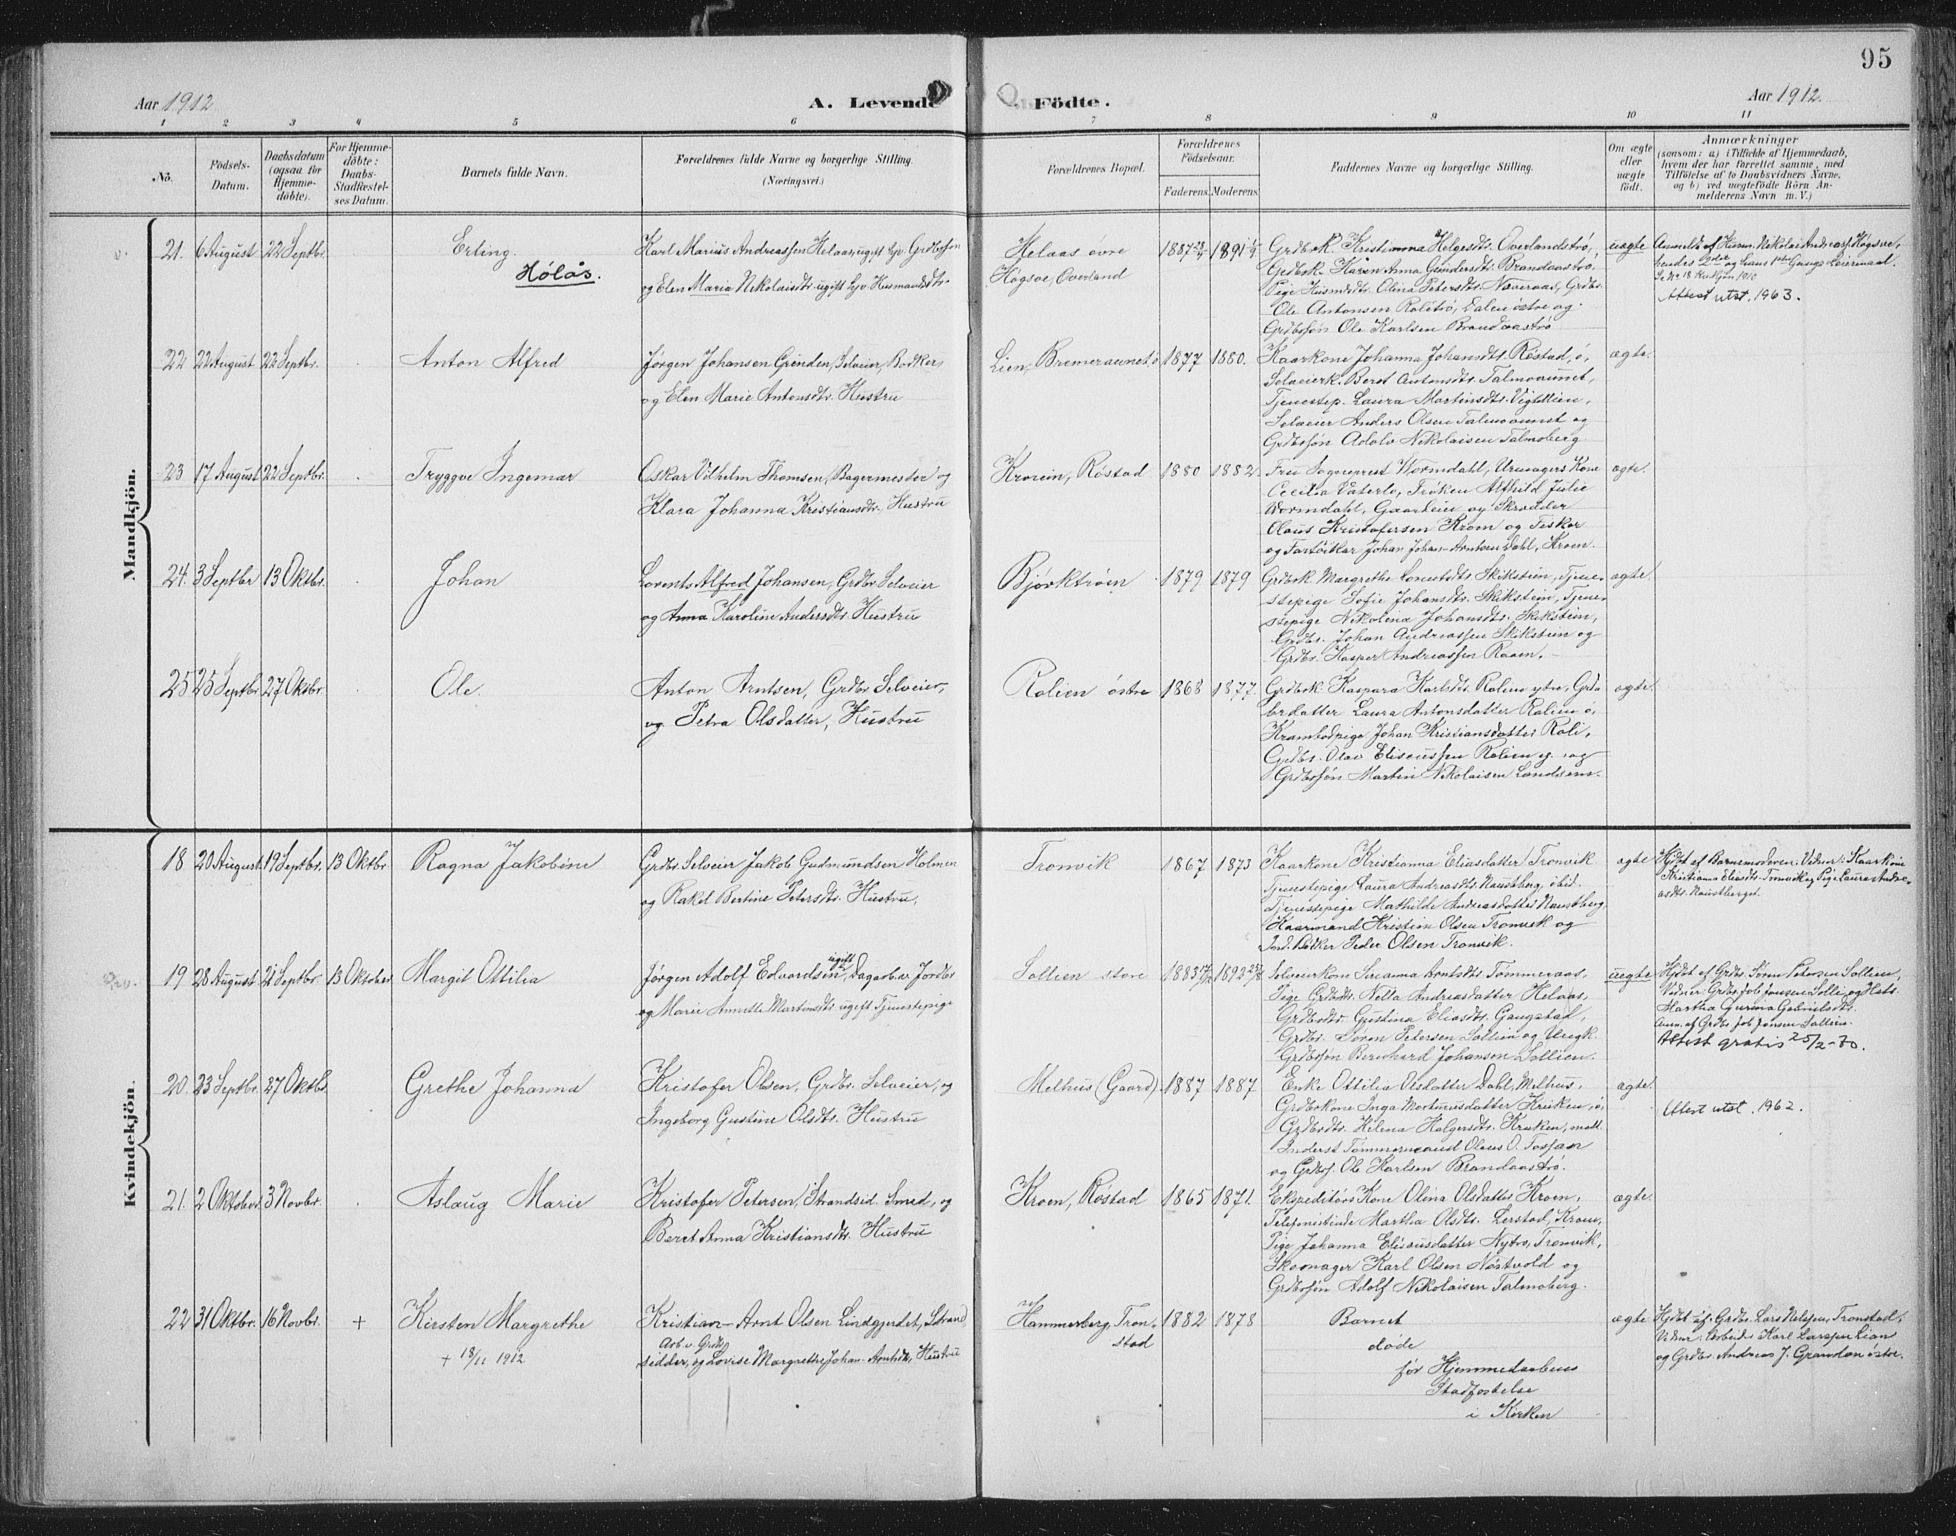 95
Aar 1912
A. Levende Födte.
Aar 1912.
1 2 3 4 5 6 7 8 9 10 11
No.
Födsels-
Datum.
Daabsdatum
(ogsaa for
Hjemme-
döbte).
For Hjemme-
döbte:
Daabs-
Stadfæstel-
ses Datum.
Barnets fulde Navn.
Forældrenes fulde Navne og borgerlige Stilling.
(Næringsvei.)
Forældrenes Bopæl.
Forældrenes
Födselsaar.
Faderens. Moderens.
Faddernes Navne og borgerlige Stilling.
Om ægte
eller
uægte
födt.
Anmærkninger
(saasom: a) i Tilfælde af Hjemmedaab,
hvem der har forrettet samme, med
Tilföielse af to Daabsvidners Navne,
og b) ved uægtefödte Börn An-
melderens Navn m. V.)
Mandkjön.
21. 6 August 22 Septbr. Erling.
Hólås.
Karl Marius Andreassen Helaas, ugift Grdbrsøn
og Elen Maria Nikolaisdtr. ugift Husmandsdtr.
Helaas øvre
Høgsve, Overland
1887 1891
Grdbrk. Kristianna Helgesdtr. Overlandstrø,
Grdbrk. Karen Anna Gundersdtr. Brandaastrø,
Pige Husmdsdtr. Olina Petersdtr. Næveraas, Grdbr.
Ole Antonsen Rolstrø, Dalen østre og
Grdbrsøn Ole Karlsen Brandaastrø
uægte
Anmeldt af Husm. Nikolai Andreas. Høgsve,
hendes 2det og hans 1ste Gangs Leiermaal.
Attest utst. 1963.
22 22 August 22 Septbr. Anton Alfred
Jørgen Johansen Grinden, Selveier, Bødker,
og Elen Marie Antonsdtr. Hustru
Lien, Bremeraunet ø
1877 1880.
Kaarkone Johanna Johansdtr. Røstad, ø,
Selveierk. Beret Antonsdtr. Talmoaunet,
Tjenestep. Laura Martinsdtr. Vigtlien,
Selveier Anders Olsen Talmoaunet og
Grdbrsøn Adolv Nikolaisen Talmoberg
ægte.
23 17 August 22 Septbr. Tryggve Ingemar
Oskar Vilhelm Thomsen, Bagermester og
Klara Johanna Kristiansdtr. Hustru
Kroein, Røstad
1880 1882
Fru Sogneprest Wormdahl, Urmagers Kone
Cecilia Vaterlo, Frøken Alfhild Julie
Wormdahl, Gaarden og Skrædder
Olaus Kristofersen Kroen og Fisker
og Fartøieier Johan Johan-Arntsen Dahl, Kroen.
ægte.
24. 3 Septbr 13 Oktbr. Johan
Lorents Alfred Johansen, Grdbr. Selveier
og Anna Karoline Andersdtr. Hustru
Bjørktrøen
1879 1879
Grdbrk. Margrethe Lorentsdtr. Skikstein, Tjene-
stepige Sofie Johansdtr. Skikstein, Tjene-
stepige Nikolina Johansdtr. Skikstein,
Grdbr. Johan Andreassen Skikstein og
Grdbr. Kasper Andreassen Raaen.
ægte.
25 25 Septbr. 27 Oktbr. Ole.
Anton Arntsen, Grdbr. Selveier,
og Petra Olsdatter, Hustru
Rolien østre
1868 1877.
Grdbrk. Kaspara Karlsdtr. Rolien ytre, Grd-
brdatter Laura Antonsdatter Rolien ø,
Krambodpige Johan Kristiansdatter Roli,
Grdbr. Olav Eliseussen Rolien y. og
Grdbrsøn Martin Nikolaisen Landsem.
ægte.
Kvindekjön.
18 20 August 19 Septbr. 13 Oktbr. Ragna Jakobine
Grdbr. Selveier Jakob Gudmundsen Holmen
og Rakel Bertine Petersdtr. Hustru,
Tronvik
1867 1873
Kaarkone Kristianna Eliasdatter Tronvik
Tjenestepige Laura Andreasdtr. Naustberg, ibid.
Tjenestepige Mathilde Andreasdatter Naustberg
Kaarmand Kristian Olsen Tronvik og
Peder Olsen Tronvik.
ægte
Hjdt. af Barnemoderen: Vidner: Kaarkone
Kristianna Eliasdtr. Tronvik og Pige Laura Andre-
asdtr. Naustberget.
19 28 August 21 Septbr. 13 Oktober Margit Ottilia
Jørgen Adolf Edvardsen ugift, Dagarb. v. Jordbr.
og Marie Annette Martinsdtr. ugift Tjenestepige
Sollien store
1883 1892
Selveierkone Serianna Arntsdtr. Tømmeraas,
Pige Grdbrdtr. Nella Andreasdatter Helaas,
Grdbrdtr. Gustina Eliasdtr. Gangstad,
Grdbr. Søren Petersen Sollien og Ungk.
Grdbrsøn Bernhard Johansen Sollien.
uægte
Hjdt. af Grdbr. Søren Petersen Sollien,
Vidner: Grdbr. Job Jonsen Sollie og Hust.
Martha Gurina Gabrielsdtr.
Anm. af Grdbr. Job Jonsen Sollien.
Attest gratis 25/2-30.
20. 23 Septbr. 27 Oktbr. Grethe Johanna
Kristofer Olsen, Grdbr. Selveier, og
Ingeborg Gustine Olsdtr. Hustru
Melhus (Gaard).
1887 1887
Enke Ottilia Olsdatter Dahl, Melhus,
Grdbrkone Inga Mortinusdatter Kruken, ø,
Grdbrdtr. Helena Holgersdtr. Kruken, mell.
Inderst Tømmermand Olaus O. Fossaan
og Grdbrs. Ole Karlsen Brandaastrø.
ægte.
Attest utst. 1962.
21. 2 Oktober 3 Novbr. Aslaug Marie
Kristofer Petersen, Strandsid. Smed, og
Beret Anna Kristiansdtr. Hustru
Kroen, Røstad
1865 1871.
Ekspeditørs Kone Olina Olsdatter Kroen,
Telefonistinde Martha Olsdtr. Lerstad, Kroen,
Pige Johanna Eliseusdatter Nytrø, Tronvik,
Skomager Karl Olsen Nøstvold og
Grdbrsøn Adolf Nikolaisen Talmoberg.
ægte.
22 31 Oktbr. 16 Novbr. + Kirsten Margrethe
+ 18/11 1912
Kristian-Arnt Olsen Lindgjerdet, Strand-
Arb. v. Grdbr.
sidder, og Lovise Margrethe Johan-Arntsdtr. Hustru
Hammerberg, Tron-
stad
1882 1878
Barnet
døde
før Hjemmedaabens
Stadfæstelse
i Kirken
ægte
Hjdt. af Grdbr. Lars Nelsen, Tronstad,
Vidner: Arbeid. Karl Larssen Lian
og Grdbr. Andreas J. Grandan østre.